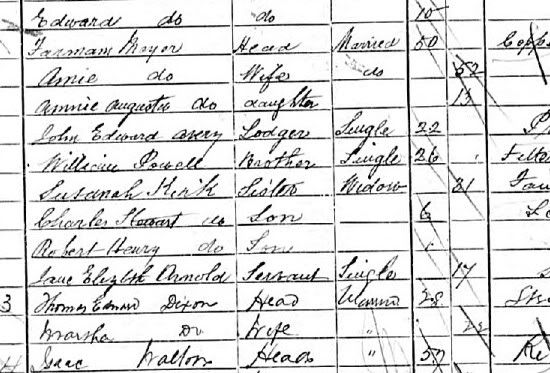 Edward do do 10
Farmam Mayor Head Married 50 Coppe
Amie do Wife do 52
Annie Augusta do daughter 13
John Edward Avery Lodger Single 22
William Powell Brother Single 26
Susanah Kirk Sister Widow 21
Charles Stewart do Son 6
Robert Henry do Son
Jane Elizbth Arnold Servant Single 17
3 Thomas Edward Dixon Head 28
Martha Do Wife " 22
4 Isaac Walton Head " 57